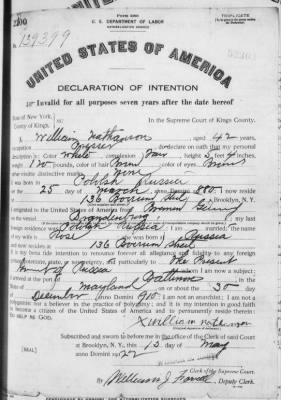 Form 2203
TRIPLICATE
U. S. DEPARTMENT OF LABOR
NATURALIZATION SERVICE
No. 129399
UNITED STATES OF AMERICA
DECLARATION OF INTENTION
Invalid for all purposes seven years after the date hereof
State of New York,
County of Kings,
In the Supreme Court of Kings County.
I, William Nathanson, aged 42 years,
occupation Presser, do declare on oath that my personal
description is: Color White, complexion Fair, height 5 feet 4 inches,
weight 130 pounds, color of hair Brown, color of eyes Brown
other visible distinctive marks None
Polish Russia
on the 25 day of March, anno Domini 1880; I now reside
at 136 Boerum Street, Brooklyn, N. Y.
I emigrated to the United States of America from
my last
foreign residence was Polish Russia; I am married; the name
of my wife is Rose; she was born at Russia
and now resides at 136 Boerum Street
It is my bona fide intention to renounce forever all allegiance and fidelity to any foreign
prince, potentate, state, or sovereignty, and particularly to The Present
Government of Russia, of whom I am now a subject;
I arrived at the port of Baltimore
State of Maryland, on or about the 30 day
of December, anno Domini 1910; I am not an anarchist; I am not a
polygamist nor a believer in the practice of polygamy; and it is my intention in good faith
to become a citizen of the United States of America and to permanently reside therein:
SO HELP ME GOD.
x William Nathanson
Subscribed and sworn to before me in the office of the Clerk of said Court
at Brooklyn, N. Y., this 13 day of May
anno Domini 1922
[SEAL]
Clerk of the Supreme Court.
By William J.
Deputy Clerk.